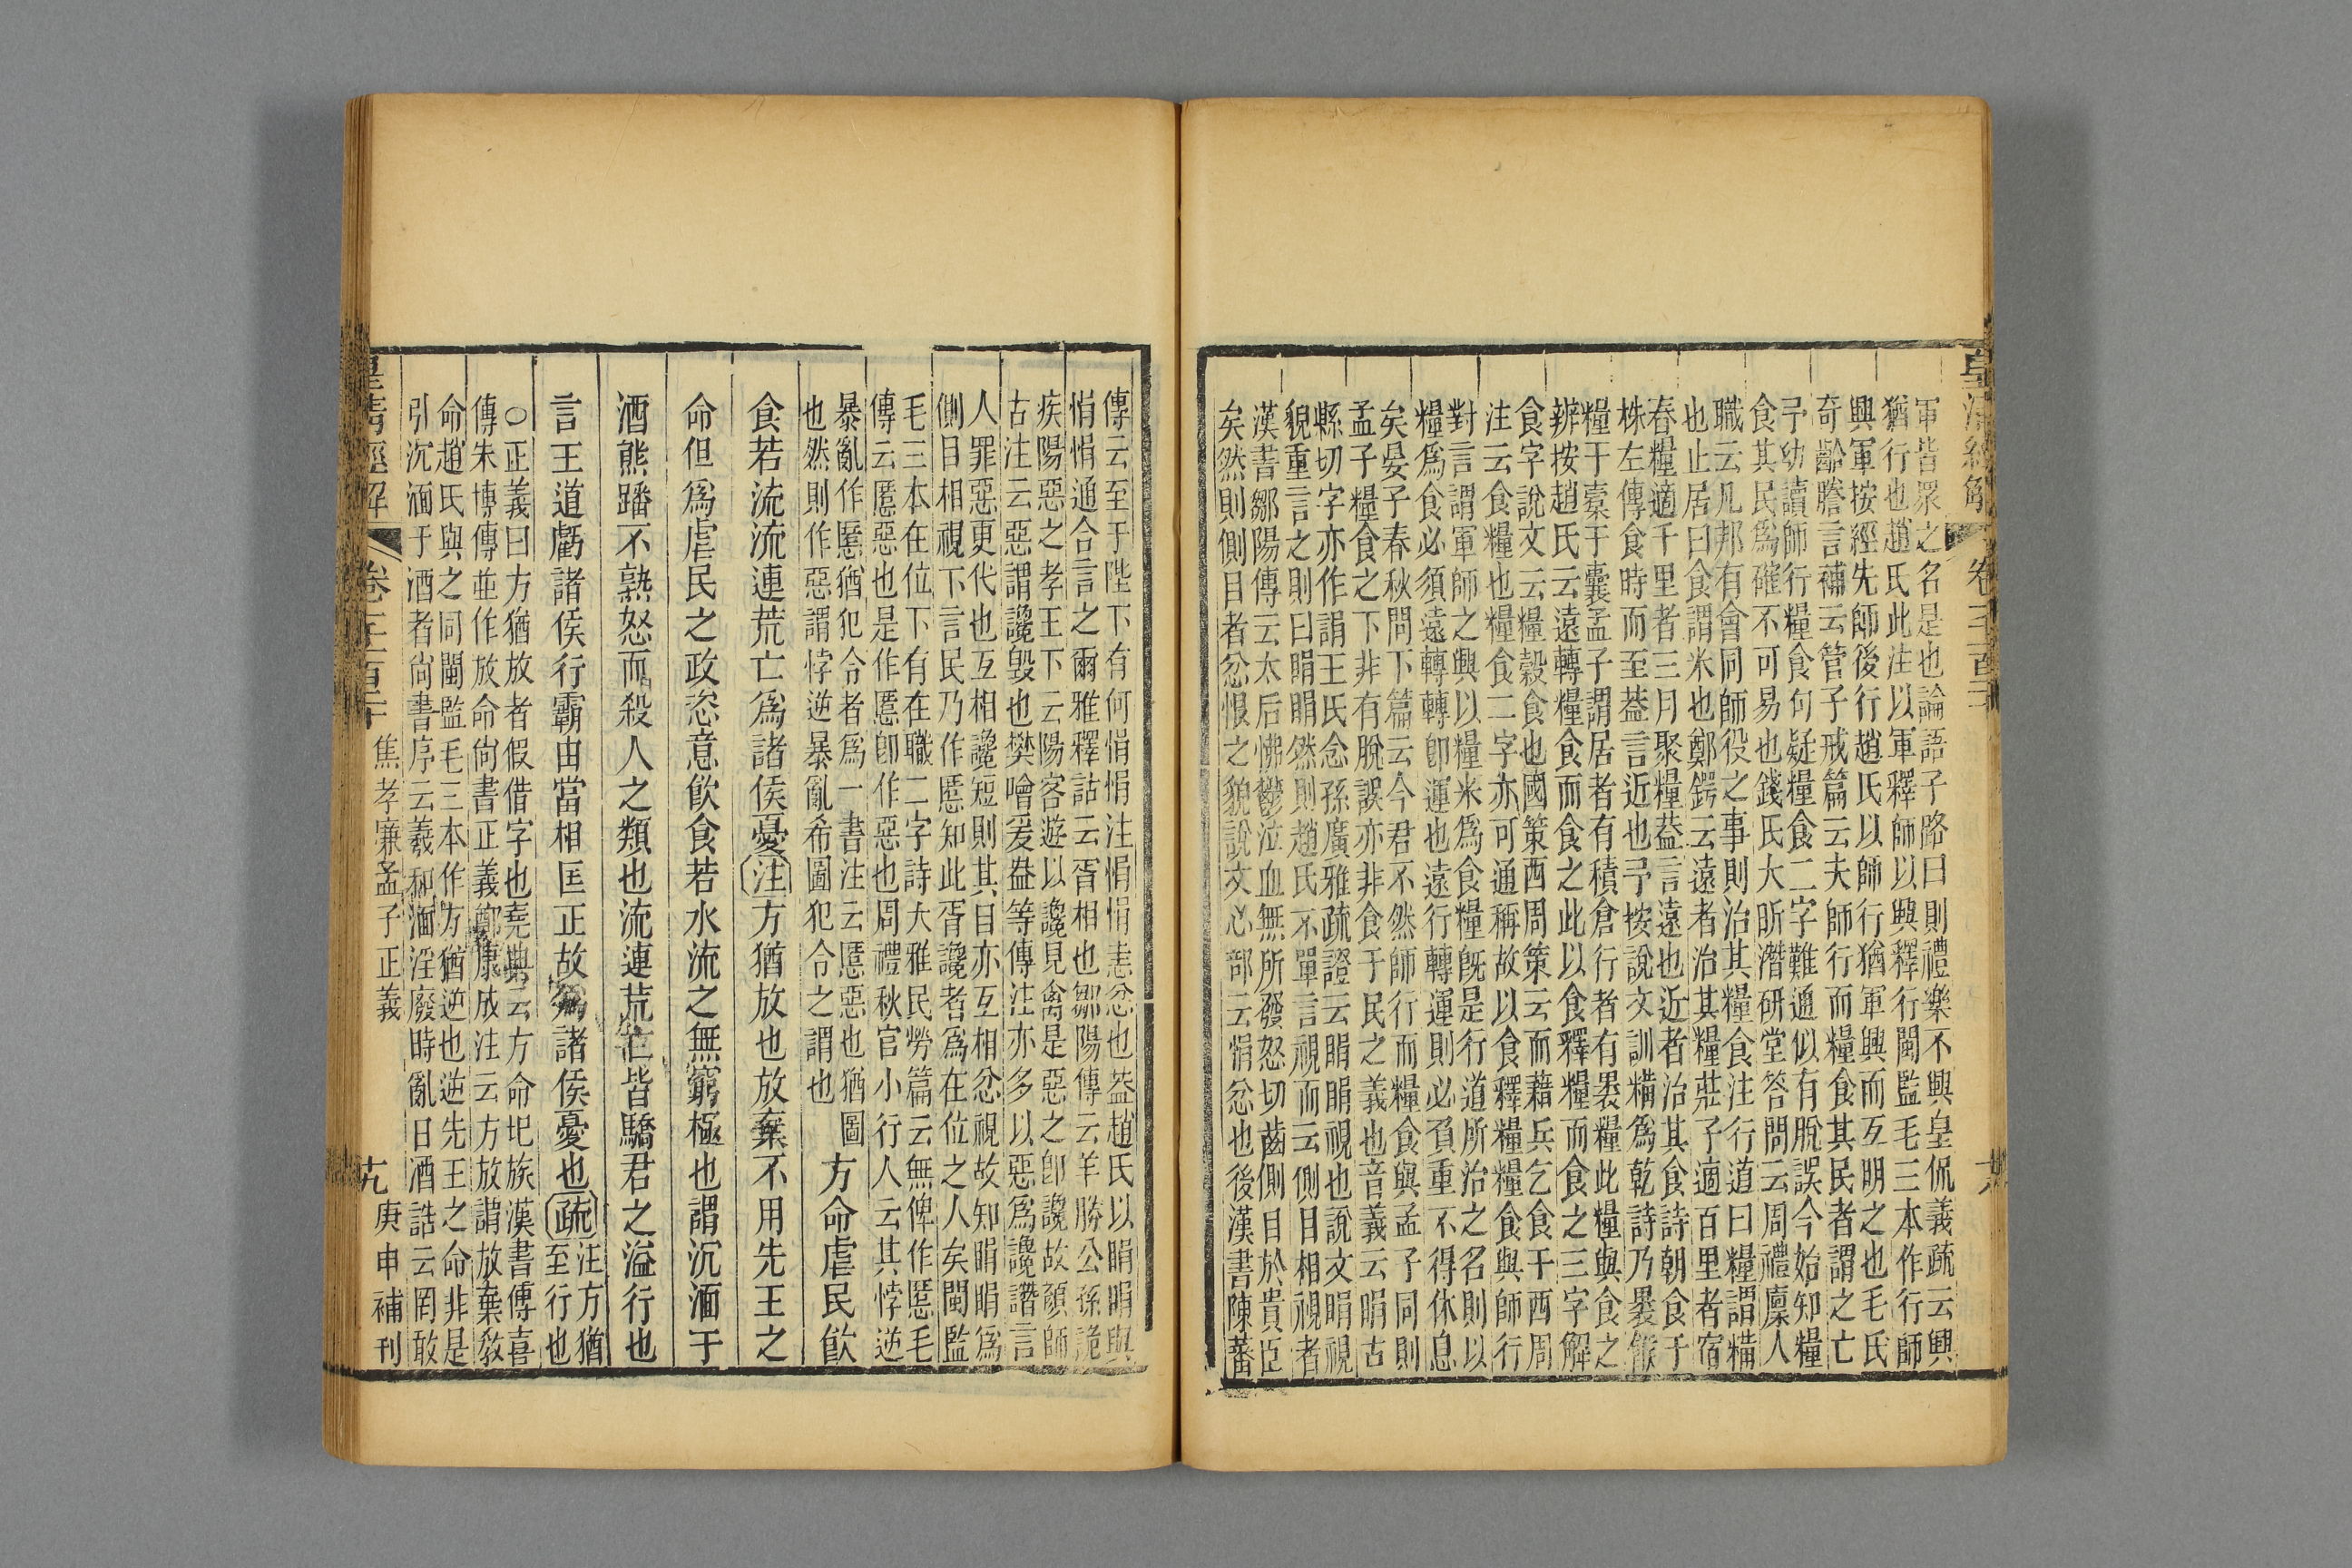 皇清經解 卷一千一百二十
軍皆眾之名是也論語子路曰則禮樂不興皇侃義疏云興
猶行也趙氏此注以軍釋師以興釋行閩監毛三本作行師
興軍按經先師後行趙氏以師行猶軍興而互明之也毛氏
奇齡賸言補云管子戒篇云夫師行而糧食其民者謂之亡
予幼讀師行糧食句疑糧食二字難通似有脫誤今始知糧
食其民爲確不可易也錢氏大昕潛研堂答問云周禮廩人
職云凡邦有會同師役之事則治其糧食注行道曰糧謂糒
也止居曰食謂米也鄭鍔云遠者治其糧莊子適百里者宿
春糧適千里者三月聚糧葢言遠也近者治其食詩朝食于
株左傳食時而至葢言近也予按說文訓糒爲乾詩乃裹餱
糧于橐于囊孟子謂居者有積倉行者有裹糧此糧與食之
辨按趙氏云遠轉糧食而食之此以食釋糧而食之三字解
食字說文云糧穀食也國策西周策云而藉兵乞食于西周
注云食糧也糧食二字亦可通稱故以食釋糧糧食與師行
對言謂軍師之興以糧米爲食糧旣是行道所治之名則以
糧爲食必須遠轉轉卽運也遠行轉運則必負重不得休息
矣晏子春秋問下篇云今君不然師行而糧食與孟子同則
孟子糧食之下非有脫誤亦非食于民之義也音義云睊古
縣切字亦作誩王氏念孫廣雅疏證云睊睊視也說文睊視
貌重言之則曰睊睊然則趙氏不單言視而云側目相視者
漢書鄒陽傳云太后怫鬱泣血無所發怒切齒側目於貴臣
矣然則側目者忿恨之貌說文心部云悁忿也後漢書陳蕃
傳云至于陛下有何悁悁注悁悁恚忿也葢趙氏以睊睊與
悁悁通合言之爾雅釋詁云胥相也鄒陽傳云羊勝公孫詭
疾陽惡之孝王下云陽客遊以讒見禽是惡之卽讒故顏師
古注云惡謂讒毀也樊噲爰盎等傳注亦多以惡爲讒譖言
人罪惡更代也互相讒短則其目亦互相忿視故知睊睊爲
側目相視下言民乃作慝知此胥讒者爲在位之人矣閩監
毛三本在位下有在職二字詩大雅民勞篇云無俾作慝毛
傳云慝惡也是作慝卽作惡也周禮秋官小行人云其悖逆
暴亂作慝猶犯令者爲一書注云慝惡也猶圖
也然則作惡謂悖逆暴亂希圖犯令之謂也
方命虐民飮
食若流流連荒亡爲諸侯憂注方猶放也放棄不用先王之
命但爲虐民之政恣意飮食若水流之無窮極也謂沉湎于
酒熊蹯不熟怒而殺人之類也流連荒亡皆驕君之溢行也
言王道虧諸侯行霸由當相匡正故爲諸侯憂也疏
注方猶
至行也
○正義曰方猶放者假借字也堯典云方命圯族漢書傅喜
傳朱博傳並作放命尙書正義鄭康成注云方放謂放棄敎
命趙氏與之同閩監毛三本作方猶逆也逆先王之命非是
引沉湎于酒者尙書序云羲和湎淫廢時亂日酒誥云罔敢
皇清經解 卷一千一百二十 焦孝廉孟子正義 庚申補刊